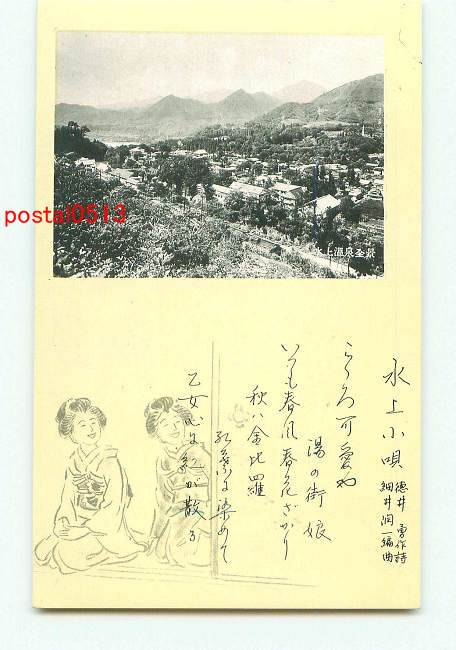 postal0513
水上温泉全景
水上小唄
徳井 勇作詩
細井潤一編曲
こゝろ可愛や
湯の街娘
いつも春風春花ざかり
秋ハ金比羅
紅葉に染めて
乙女心に
が散る